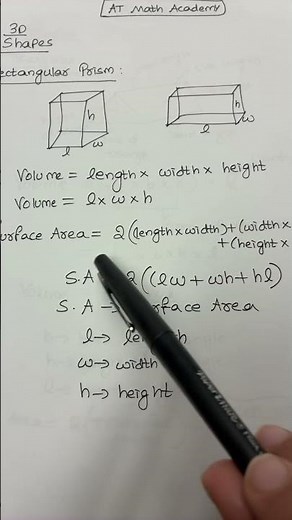 AT Math Academy
3D
Shapes
ectangular Prism:
h
l
w
h
l
w
Volume = length x width x height
Volume = l x w x h
urface Area = 2(length x width) + (width x
+ (height x
S.A 2((lw + wh + hl)
S.A → rface Area
l →
w → width
h → height